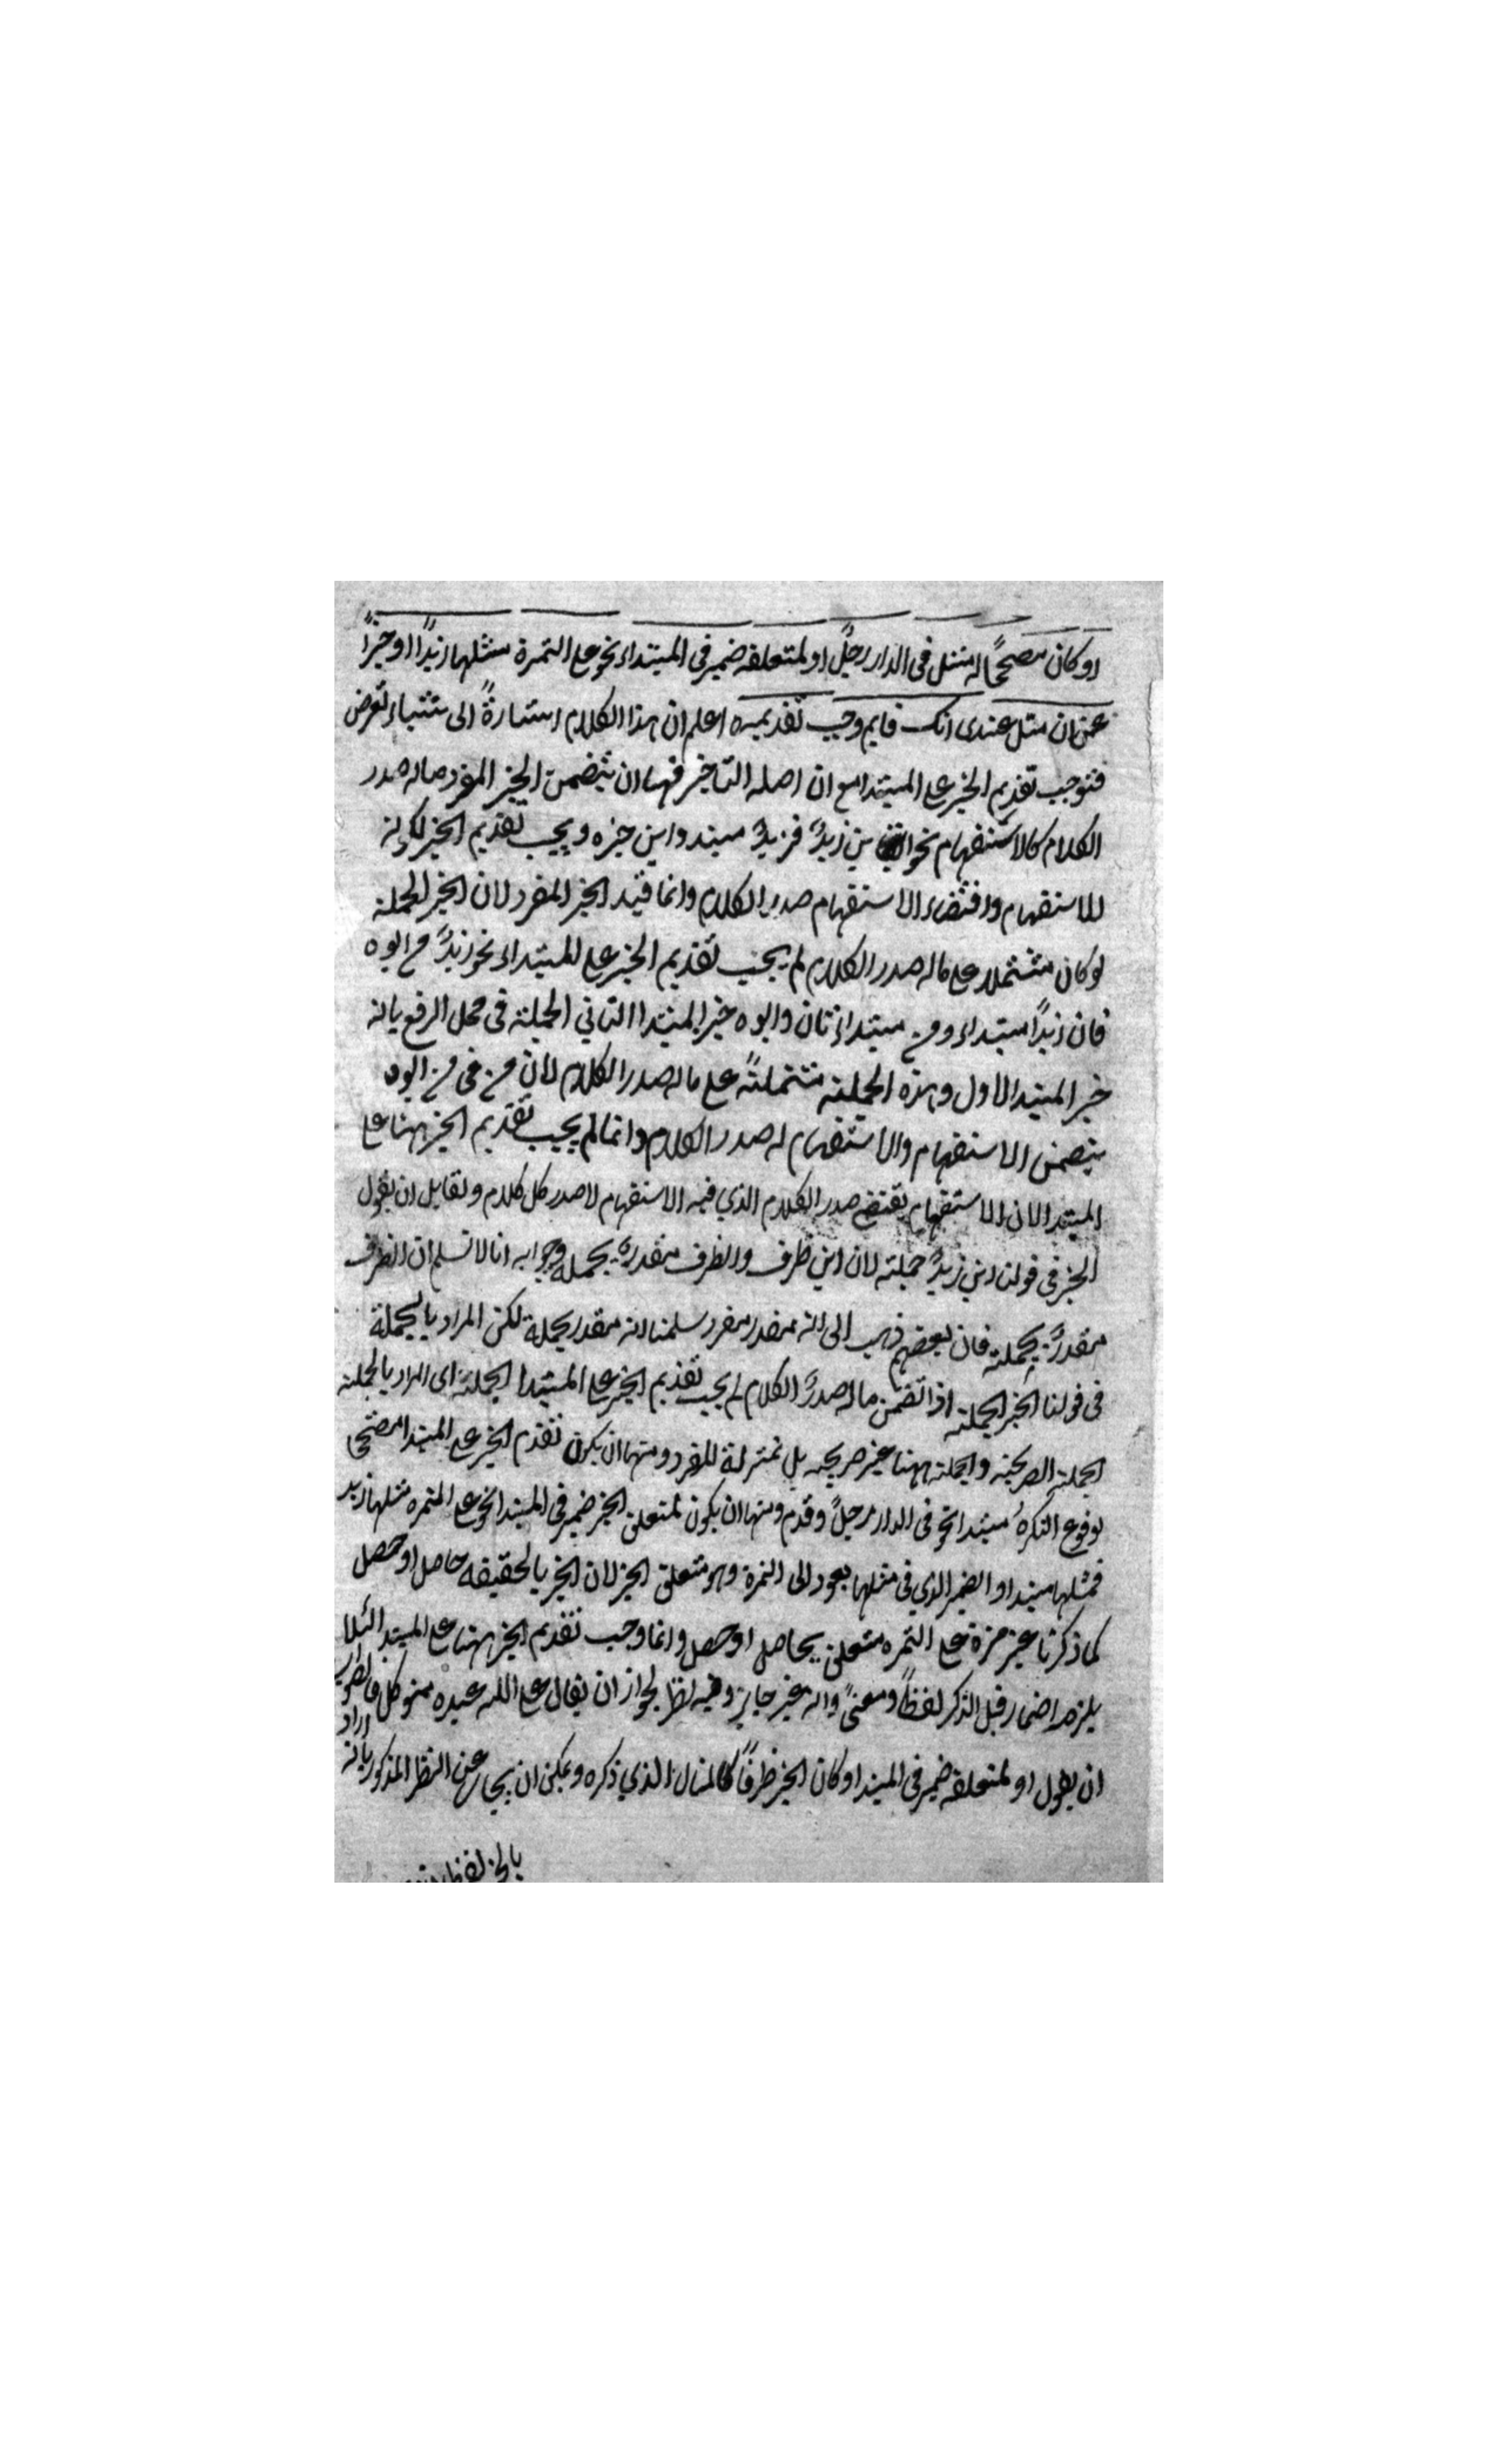 او كان مصححًا له مثل فى الدار رجلٌ او لمتعلقه ضمير فى المبتداء نحو على التمرة مثلها زبدًا او خبرًا
عن ان مثل عندى انك قايم وجب تقديمه اعلم ان هذا الكلام اشارةً الى اشياء تعرض
فتوجب تقديم الخبر على المبتدا مع ان اصله التاخير فمنها ان يتضمن الخبر المفرد ماله صدر
الكلام كالاستفهام نحو اين زيدٌ فزيدٌ مبتدا واين خبره ويجب تقديم الخبر لكونه
للاستفهام واقتضاء الاستفهام صدر الكلام وانما قيد الخبر المفرد لان الخبر الجملة
لو كان مشتملا على ماله صدر الكلام لم يجب تقديم الخبر على المبتداء نحو زيدٌ من ابوه
فان زيدًا مبتداء ومن مبتداء ثان وابوه خبر المبتدا الثاني الجملة فى محل الرفع بانه
خبر المبتدا الاول وهذه الجملة مشتملةً على ماله صدر الكلام لان من فى من ابوه
يتضمن الاستفهام والاستفهام له صدر الكلام وانما لم يجب تقديم الخبر ههنا على
المبتدا لان الاستفهام يقتضى صدر الكلام الذي فيه الاستفهام لا صدر كل كلام ولقايل ان يقول
الخبر فى قولنا اين زيدٌ جملة لان اين ظرف والظرف مقدرة بجملة وجوابه انا لا نسلم ان الظرف
مقدرة بجملة فان بعضهم ذهب الى انه مقدر مفرد سلمنا انه مقدر بجملة لكن المراد بالجملة
فى قولنا الخبر الجملة اذا تضمن ماله صدرُ الكلام لم يجب تقديم الخبر على المبتدا الجملة اى المراد بالجملة
الجملة الصريحة والجملة ههنا غير صريحه بل بمنزلة المفرد ومنها ان يكون تقدم الخبر على المبتدا مصححا
لوقوع النكرة مبتدا نحو فى الدار رجلٌ وقدم ومنها ان يكون لمتعلق الخبر ضمير فى المبتدا نحو على التمره مثلها زبد
فمثلها مبتدا والضمير الذي فى مثلها يعود الى التمرة وهو متعلق الخبر لان الخبر بالحقيقه حاصل او حصل
كما ذكرنا غير مرة على التمره متعلق بحاصل او حصل وانما وجب تقديم الخبر ههنا على المبتدا لئلا
يلزم اضمار قبل الذكر لفظًا ومعنىً وانه غير جايز وفيه نظر لجواز ان يقال على الله عبده متوكل فالصواب
ان يقول او لمتعلقه ضمير فى المبتدا وكان الخبر ظرفًا كالمثال الذي ذكره ويمكن ان يجاب عن النظر المذكور بانه اراد
بالخبر